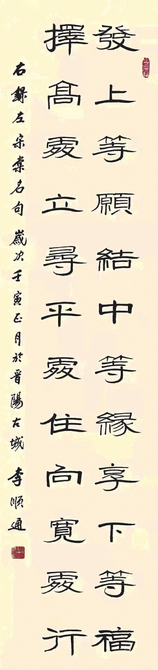 發上等願結中等緣享下等福
擇高處立尋平處住向寬處行
右錄左宗棠名句歲次壬寅正月於晉陽古城李順通